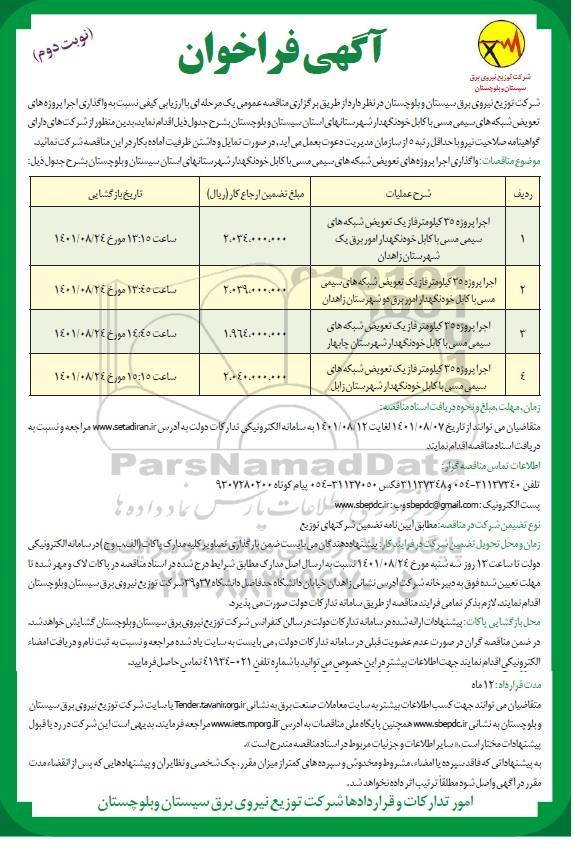 آگهی فراخوان
(نوبت دوم)
شرکت توزیع نیروی برق
سیستان و بلوچستان
شرکت توزیع نیروی برق سیستان و بلوچستان در نظر دارد از طریق برگزاری مناقصه عمومی یک مرحله ای با ارزیابی کیفی نسبت به واگذاری اجرا پروژه های
تعویض شبکه های سیمی مسی با کابل خودنگهدار شهرستانهای استان سیستان و بلوچستان بشرح جدول ذیل اقدام نماید، بدین منظور از شرکت های دارای
گواهینامه صلاحیت نیرو با حداقل رتبه ۵ از سازمان مدیریت دعوت بعمل می آید، در صورت تمایل و داشتن ظرفیت آماده بکار در این مناقصه شرکت نمائید.
موضوع مناقصات: واگذاری اجرا پروژه های تعویض شبکه های سیمی مسی با کابل خودنگهدار شهرستانهای استان سیستان و بلوچستان بشرح جدول ذیل:
ردیف شرح عملیات مبلغ تضمین ارجاع کار (ریال) تاریخ بازگشایی
۱ اجرا پروژه ۳۵ کیلومتر فاز یک تعویض شبکه های
سیمی مسی با کابل خودنگهدار امور برق یک
شهرستان زاهدان ۲.۰۳۴.۰۰۰.۰۰۰ ساعت ۱۳:۱۵ مورخ ۱۴۰۱/۰۸/۲۴
۲ اجرا پروژه ۳۵ کیلومتر فاز یک تعویض شبکه های سیمی
مسی با کابل خودنگهدار امور برق دو شهرستان زاهدان ۲.۰۳۹.۰۰۰.۰۰۰ ساعت ۱۳:۴۵ مورخ ۱۴۰۱/۰۸/۲۴
۳ اجرا پروژه ۳۵ کیلومتر فاز یک تعویض شبکه های
سیمی مسی با کابل خودنگهدار شهرستان چابهار ۱.۹۶۴.۰۰۰.۰۰۰ ساعت ۱۴:۴۵ مورخ ۱۴۰۱/۰۸/۲۴
۴ اجرا پروژه ۳۵ کیلومتر فاز یک تعویض شبکه های
سیمی مسی با کابل خودنگهدار شهرستان زابل ۲.۰۴۰.۰۰۰.۰۰۰ ساعت ۱۵:۱۵ مورخ ۱۴۰۱/۰۸/۲۴
زمان، مهلت، مبلغ و نحوه دریافت اسناد مناقصه:
متقاضیان می توانند از تاریخ ۱۴۰۱/۰۸/۰۷ لغایت ۱۴۰۱/۰۸/۱۲ به سامانه الکترونیکی تدارکات دولت به آدرس www.setadiran.ir مراجعه و نسبت به
دریافت اسناد مناقصه اقدام نمایند
اطلاعات تماس مناقصه گزار:
تلفن ۳۱۱۳۷۳۴۰-۰۵۴ و ۳۱۱۳۷۳۴۸ فکس ۳۱۱۳۷۰۵۰-۰۵۴ پیام کوتاه ۹۳۰۷۲۸۰۲۰۰
پست الکترونیک: sbepdc@gmail.com وب: www.sbepdc.ir
نوع تضمین شرکت در مناقصه: مطابق آیین نامه تضمین شرکتهای توزیع
زمان و محل تحویل تضمین شرکت در فرایند کار: پیشنهاددهندگان می بایست ضمن بارگذاری تصاویر کلیه مدارک پاکات (الف، ب و ج) در سامانه الکترونیکی
دولت تا ساعت ۱۲ روز سه شنبه مورخ ۱۴۰۱/۰۸/۲۴ نسبت به ارسال اصل مدارک مطابق شرایط درج شده در اسناد مناقصه در پاکات لاک و مهر شده تا
مهلت تعیین شده فوق به دبیرخانه شرکت آدرس نشانی زاهدان خیابان دانشگاه حدفاصل دانشگاه ۳۷ و ۳۹ شرکت توزیع نیروی برق سیستان و بلوچستان
اقدام نمایند. لازم بذکر تمامی فرایند مناقصه از طریق سامانه تدارکات دولت صورت می پذیرد.
محل بازگشایی پاکات: پیشنهادات ارائه شده در سامانه تدارکات دولت در سالن کنفرانس شرکت توزیع نیروی برق سیستان و بلوچستان گشایش خواهد شد.
در ضمن مناقصه گران در صورت عدم عضویت قبلی در سامانه تدارکات دولت، می بایست به سایت یاد شده مراجعه و نسبت به ثبت نام و دریافت امضاء
الکترونیکی اقدام نمایند جهت اطلاعات بیشتر در این خصوص می توانید با شماره تلفن ۰۲۱-۴۱۹۳۴ تماس حاصل فرمایید.
مدت قرارداد: ۱۲ ماه
متقاضیان می توانند جهت کسب اطلاعات بیشتر به سایت معاملات صنعت برق به نشانی Tender.tavanir.org.ir یا سایت شرکت توزیع نیروی برق سیستان
و بلوچستان به نشانی www.sbepdc.ir همچنین پایگاه ملی مناقصات به آدرس www.iets.mporg.ir مراجعه فرمایند. بدیهی است این شرکت در رد یا قبول
پیشنهادات مختار است. « سایر اطلاعات و جزئیات مربوط در اسناد مناقصه مندرج است ».
به پیشنهاداتی که فاقد سپرده یا امضاء، مشروط و مخدوش و سپرده های کمتر از میزان مقرر، چک شخصی و نظایر آن و پیشنهادهایی که پس از انقضاء مدت
مقرر در آگهی واصل شود مطلقاً ترتیب اثر داده نخواهد شد.
امور تدارکات و قراردادها شرکت توزیع نیروی برق سیستان وبلوچستان
ParsNamadData